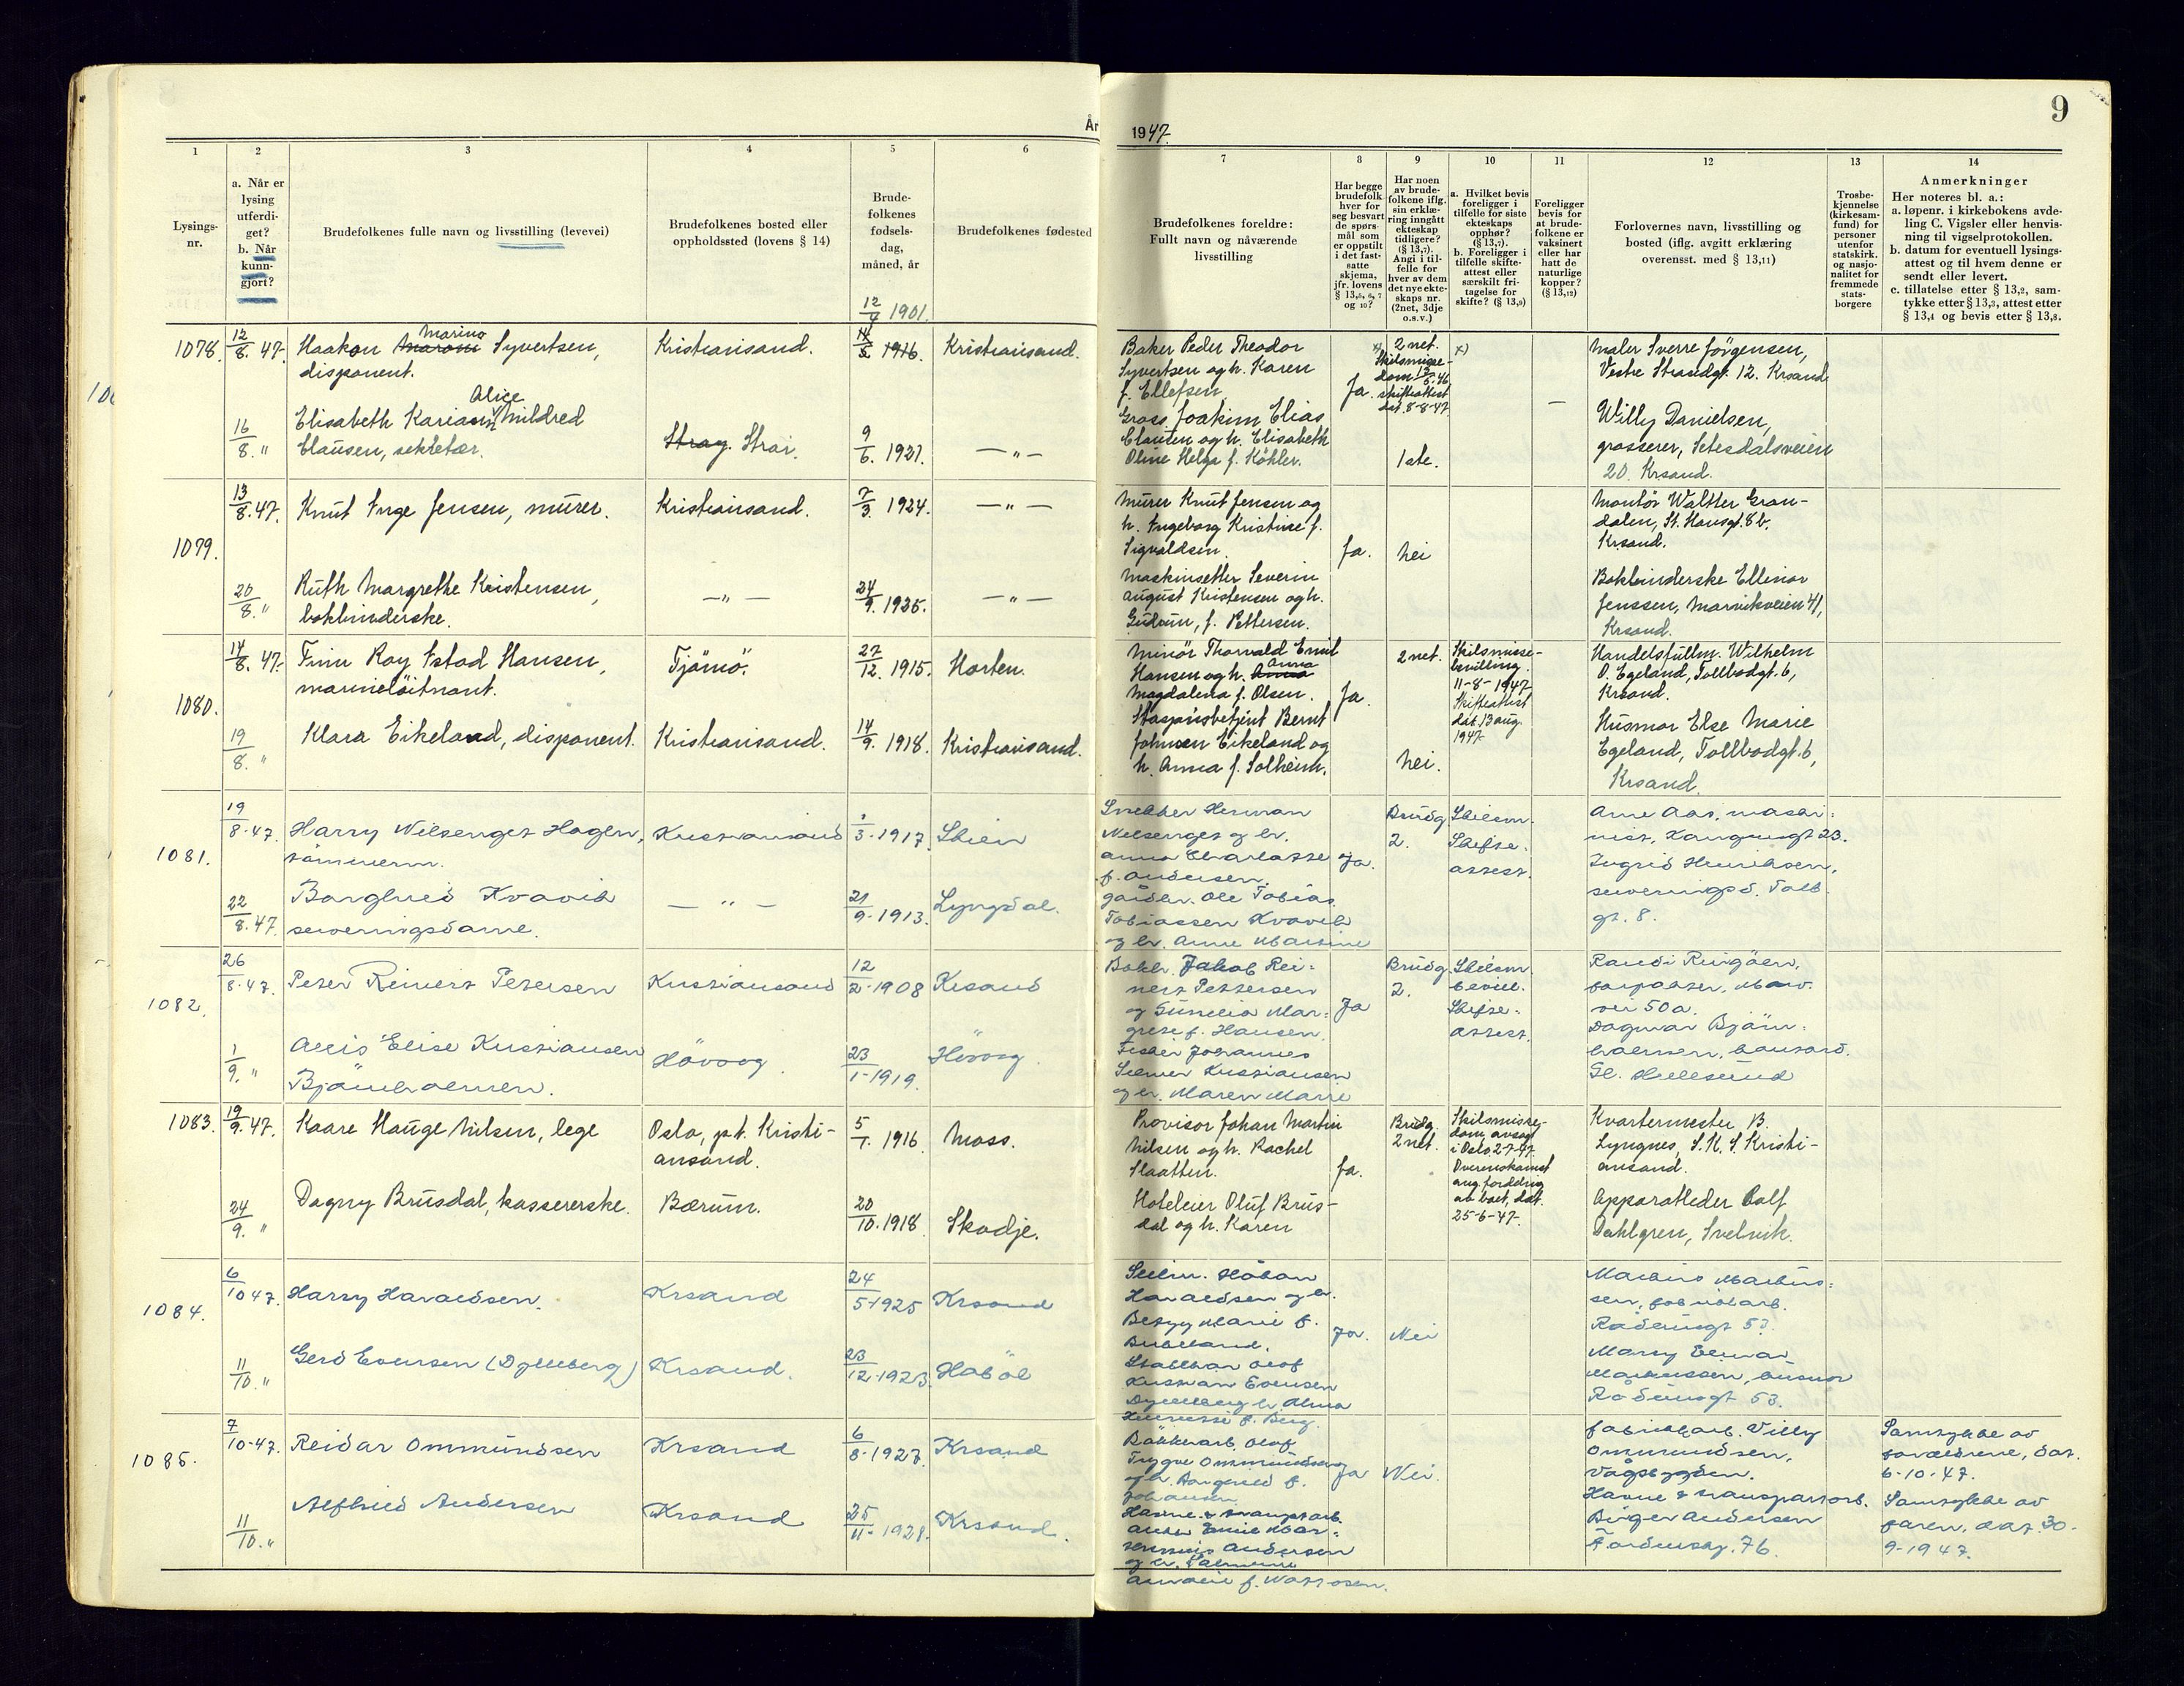 År 1947.
9
1 2 3 4 5 6 7 8 9 10 11 12 13 14
Lysings-
nr.
a. Når er
lysing
utferdi-
get?
b. Når
kunn-
gjort?
Brudefolkenes fulle navn og livsstilling (levevei)
Brudefolkenes bosted eller
oppholdssted (lovens § 14)
Brude-
folkenes
fødsels-
dag,
måned, år
Brudefolkenes fødested
Brudefolkenes foreldre:
Fullt navn og nåværende
livsstilling
Har begge
brudefolk
hver for
seg besvart
de spørs-
mål som
er oppstilt
i det fast-
satte
skjema,
jfr. lovens
§ 13,5, 6, 7
og 10?
Har noen
av brude-
folkene iflg.
sin erklæ-
ring inngått
ekteskap
tidligere?
(§ 13,7).
Angi i til-
felle for
hver av dem
det nye ekte-
skaps nr.
(2net, 3dje
o.s.v.)
a. Hvilket bevis
foreligger i
tilfelle for siste
ekteskaps
opphør?
(§ 13,7)
b. Foreligger i
tilfelle skifte-
attest eller
særskilt fri-
tagelse for
skifte? (§ 13,9)
Foreligger
bevis for
at brude-
folkene er
vaksinert
eller har
hatt de
naturlige
kopper?
(§ 13,12)
Forlovernes navn, livsstilling og
bosted (iflg. avgitt erklæring
overensst. med § 13,11)
Trosbe-
kjennelse
(kirkesam-
fund) for
personer
utenfor
statskirk.
og nasjo-
nalitet for
fremmede
stats-
borgere
Anmerkninger
Her noteres bl. a.:
a. løpenr. i kirkebokens avde-
ling C. Vigsler eller henvis-
ning til vigselprotokollen.
b. datum for eventuell lysings-
attest og til hvem denne er
sendt eller levert.
c. tillatelse etter § 13,2, sam-
tykke etter § 13,3, attest etter
§ 13,4 og bevis etter § 13,8.
1078. 12/8. 47.
Haakon Marino Syvertsen,
disponent.
Kristiansand.
12/4 1901.
1916.
Kristiansand.
Baker Peder Theodor
Syvertsen og h. Karen
f. Ellefsen
Ja.
x) 2 net.
Skilsmisse-
dom
skifteattest
dat. 8-8-47
x)
—
Maler Sverre Jörgensen,
Vestre Strandgt. 12. Krsand
16/8. "
Alice
Elisabeth Mildred
Clausen, sekretær.
Stray. Strai.
9/6. 1921.
— " —
Gross. Joakim Elias
Clausen og h. Elisabeth
Oline Helga f. Köhler.
1ste.
Willy Danielsen,
grosserer, Setesdalsveien
20. Krsand.
1079. 13/8. 47.
Knut Inge Jensen, murer.
Kristiansand.
7/3. 1924.
— " —
Murer Knut Jensen og
h. Ingeborg Kristine f.
Sigvaldsen.
Ja. Nei
Montör Walther Gran-
dalen, St. Hansgt. 8 b.
Krsand.
20/8. "
Ruth Margrethe Kristensen,
bokbinderske.
— " —
24/9. 1925.
— " —
Maskinsetter Severin
August Kristensen og h.
Gudrun, f. Pettersen.
Bokbinderske Ellinor
Jenssen, Marvikveien 41,
Krsand.
1080. 14/8. 47.
Finn Roy Ystad Hansen,
marinelöitnant.
Tjömö.
27/12. 1915.
Horten.
Minör Thorvald Emil
Hansen og h. Anna
Magdalena f. Olsen.
Ja.
2 net.
Skilsmisse-
bevilling
11-8-1947
Skifteattest
dat. 13 aug.
1947
Handelsfullm. Wilhelm
O. Egeland, Tollbodgt. 6,
Krsand.
19/8. "
Klara Eikeland, disponent.
Kristiansand.
14/9. 1918.
Kristiansand.
Stasjonsbetjent Bernt
Johnsen Eikeland og
h. Anna f. Solheim.
Nei.
Husmor Else Marie
Egeland, Tollbodgt. 6,
Krsand.
1081. 19/8. 47.
Harry Hagen,
tömrerm.
Kristiansand
3. 1917.
Skien
Snekker Herman
og h.
Anna Charlotte
f. Andersen.
Ja.
Brudg.
2.
Skilsm.
Skifte-
attest.
Arne Aas, maski-
nist, 23.
22/8. 47.
Borghild Kvavik
serveringsdame.
— " —
21/9. 1913.
Lyngdal.
Gårdbr. Ole Tobias
Tobiassen Kvavik
og h. Anne Martine
Ingrid Henriksen,
serveringsd. Tollb.
gt. 8.
1082. 26/8. 47.
Peter Reinert Petersen
Kristiansand
12/2. 1908
Krsand
Bokh. Jakob Rei-
nert Pettersen
og Gunelia Mar-
grete f. Hansen.
Ja
Brudg.
2.
Skilsm.
bevill.
Skifte-
attest.
Randi Ringöen,
Marv.
vei 50a.
1/9. "
Alvis Elise Kristiansen
Bjömholmen.
Hövåg.
23/1. 1919.
Hövåg.
Fisker Johannes
Selmer Kristiansen
og h. Maren Marie
Dagmar Bjöm-
holmen,
Gl. Hellesund
1083. 19/9. 47.
Kaare Hauge Nilsen, lege
Oslo, p.t. Kristi-
ansand.
5/7. 1916
Moss.
Provisor Johan Martin
Nilsen og h. Rachel
Slaatten.
Ja.
Brudg.
2 net.
Skilsmisse-
dom, avsagt
i Oslo 2-7-47.
Overenskomst
ang. fordeling
av boet, dat.
25-6-47.
Kvartermester B.
Lyngnes, S.K.S. Kristi-
ansand.
24/9. "
Dagny Brusdal, kassererske.
Bærum.
20/10. 1918
Skodje.
Hoteleier Oluf Brus-
dal og h. Karen
Apparatleder Ralf
Dahlgren, Svelvik.
1084. 6/10 47.
Harry Haraldsen.
Krsand
24/5. 1925
Krsand
Håkon
Haraldsen og h.
Betzy Marie f.
Birkeland.
Ja. Nei
Markus Markus-
sen, fabrikkarb.
Rådhusgt 53.
11/10. "
Gerd Evensen (Dyllberg)
Krsand.
23/12. 1923.
Haböl
Olof
Kristian Evensen
h. Alma
f. Berg.
Markussen, husmor
Rådhusgt 53.
1085. 7/10. 47.
Reidar Ommundsen
Krsand
6/8. 1927.
Krsand
Böckerarb. Olof
Trygve Ommundsen
og h. f.
Johansen.
Ja Nei.
Fabrikkarb. Villy
Ommundsen,
Vågsbygden.
Samtykke av
foreldrene, dat.
6-10-47.
11/10. "
Alfhild Andersen
Krsand
25/11. 1928.
Krsand.
Havne & transp.arb.
Andersen
og h.
Amalie f.
Havne & transportarb.
Birger Andersen
76.
Samtykke av
faren, dat. 30-
9-1947.